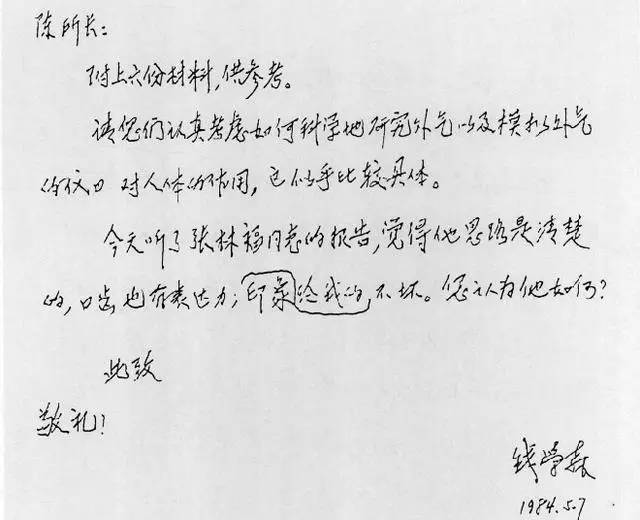 陈所长：
附上六份材料，供参考。
请您们认真考虑如何科学地研究外气以及模拟外气
的仪口对人体的作用，这似乎比较具体。
今天听了张林福同志的报告，觉得他思路是清楚
的，口齿也有表达力；印象给我的，不坏。您认为他如何？
此致
敬礼！
钱学森
1984.5.7